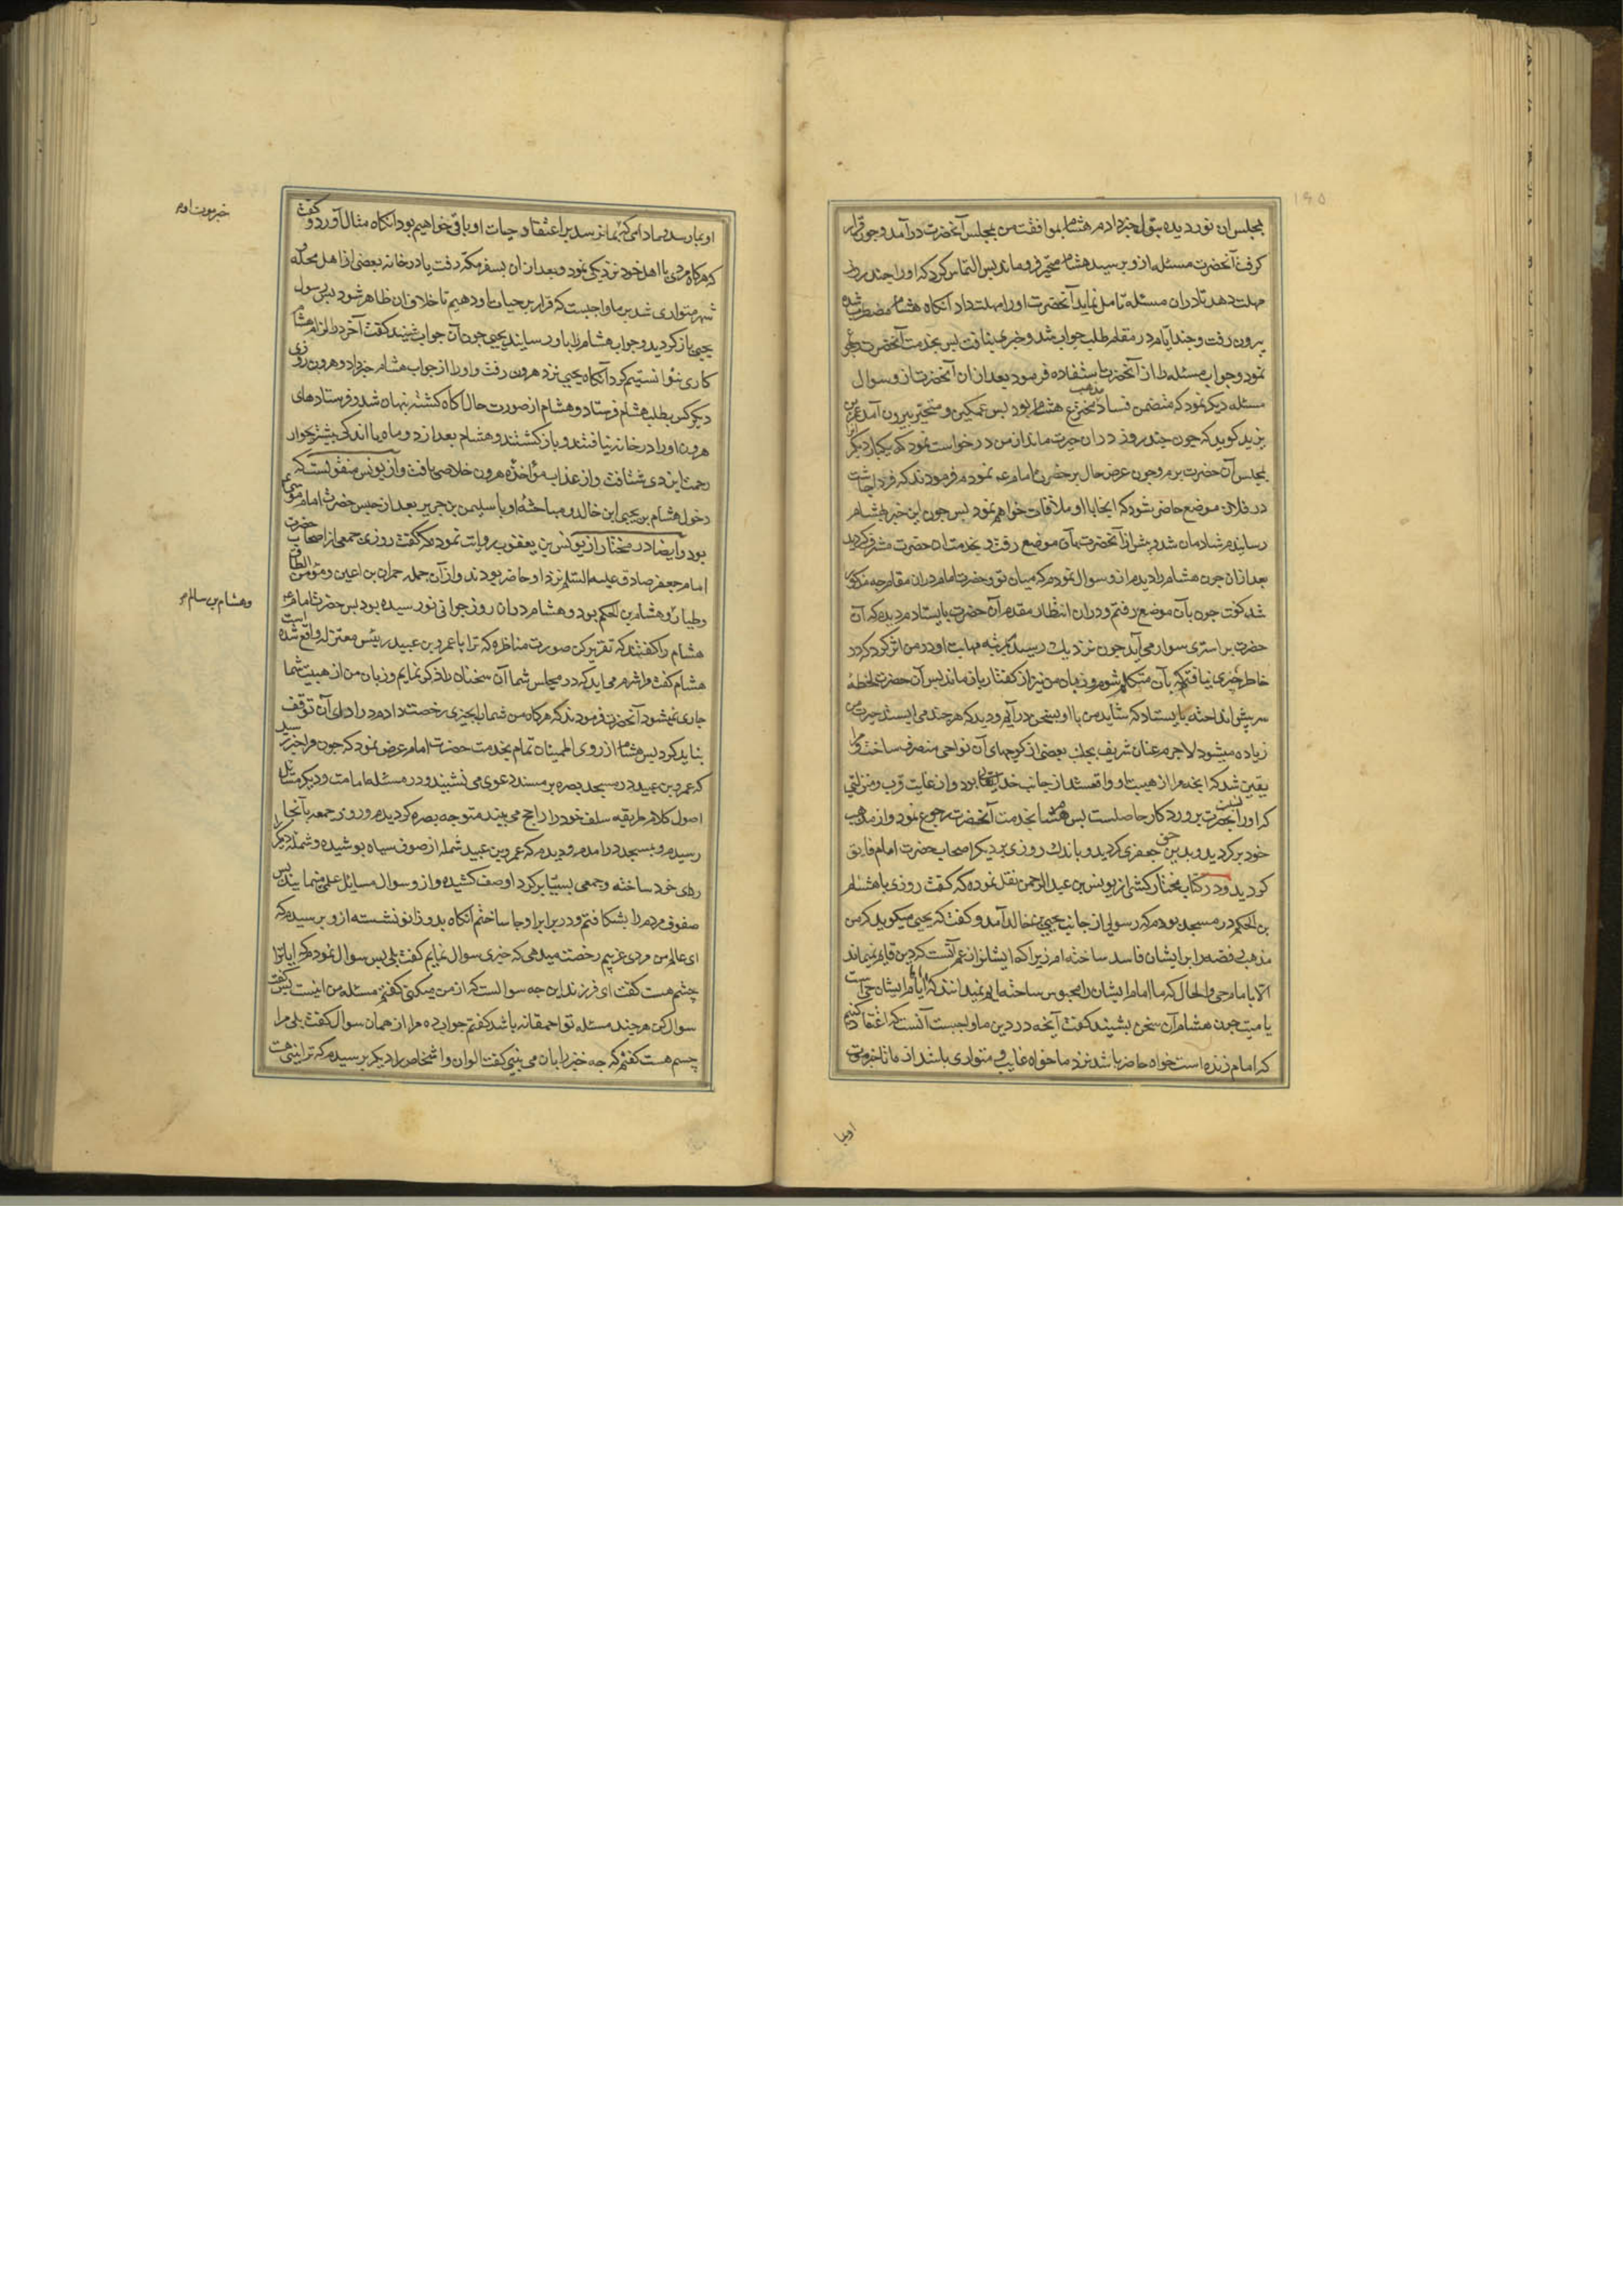 ۱۹۵
بمجلس آن نور دیده بتول خبر دادم هشام بموافقت من بمجلس آنحضرت درآمد و چون قرار
کرفت آنحضرت مسئله از و پرسید هشام متحیر فرو ماند پس التماس کرد که او را چند روزی
مهلت دهد تا در ان مسئله تامل نماید آنحضرت او را مهلت داد آنکاه هشام مضطرب شده
بیرون رفت و چند ایام در مقام طلب جواب شد و خبری نیافت پس بخدمت آنحضرت
نمود و جواب مسئله را از آنحضرت استفاده فرمود بعد از ان آنحضرت از و سوال
مسئله دیکر نمود که متضمن فساد مذهب هشام بود پس غمکین و متحیر بیرون آمد عمر بن
یزید کوید که چون چند روز در ان حیرت ماند از من درخواست نمود که یکبار دیکر
بمجلس آن حضرت برم و چون عرض حال بر حضرت امام نمودم فرمودند که فردا چاشت
در فلان موضع حاضر شود که انجا با او ملاقات خواهم نمود پس چون این خبر بهشام
رسانیدم شادمان شد و پیشتر از آنحضرت بآن موضع رفت و بخدمت ان حضرت مشرف کردید
بعد از ان چون هشام را دیدم از و سوال نمودم که میان تو و حضرت امام در ان مقام چه مذکور
شد کفت چون بآن موضع رفتم و در ان انتظار مقدم آن حضرت بایستادم دیدم که آن
حضرت بر استری سوار می آید چون نزدیک رسید مهابت او در من اثر کرد که در
خاطر چیزی نیافتم که بآن متکلم شوم و زبان من نیز از کفتار باز ماند پس آن حضرت لحظه
سر پیش انداخته بایستاد که شاید من با او بسخن درآیم و دید که هر چند می ایستد حیرت من
زیاده میشود لاجرم عنان شریف بجانب بعضی از کوچهای آن نواحی منصرف ساخت و مرا
یقین شد که آنچه مرا از هیبت او واقع شد از جانب خدایتعالی بود و از غایت قرب و منزلتی
که او را بحضرت پروردکار حاصلست پس هشام بخدمت آنحضرت رجوع نمود و از مذهب
خود برکردید و بدین حق جعفری کردید و باندک روزی بر دیکر اصحاب حضرت امام فایق
کردید و در کتاب مختار کشی از یونس بن عبد الرحمن نقل نموده که کفت روزی با هشام
بن الحکم در مسجد بودم که رسولی از جانب یحیی بن خالد آمد و کفت که یحیی میکوید که من
مذهب رفضه را بر ایشان فاسد ساخته ام زیرا که ایشانرا زعم آنست که دین قایم نمیماند
الا بامام حی و الحال که ما امام ایشان را محبوس ساخته ایم نمیدانند که آیا امام ایشان حی است
یا میت چون هشام آن سخن بشنید کفت آنچه در دین ما واجبست آنست که اعتقاد کنیم
که امام زنده است خواه حاضر باشد نزد ما خواه غایب و متواری باشد از ما تا خبر موت
او بما
او بما رسد و مادامی که بما نرسد بر اعتقاد حیات او باقی خواهیم بود آنکاه مثال آورد و کفت
خبر موت او
که هرکاه مردی با اهل خود نزدیکی نمود و بعد از ان بسفر مکه رفت یا در خانه بعضی از اهل محله
شهر متواری شد بر ما واجبست که قرار بر حیات او دهیم تا خلاف آن ظاهر شود پس رسول
یحیی باز کردید و جواب هشام را باو رسانید یحیی چون آن جواب شنید کفت آخر در الزام هشام
کاری نتوانستیم کرد آنکاه یحیی نزد هرون رفت و او را از جواب هشام خبر داد و هرون روزی
دیکر کس بطلب هشام فرستاد و هشام از صورت حال آکاه کشته پنهان شد و فرستادهای
هرون او را در خانه نیافتند و باز کشتند و هشام بعد از دو ماه یا اندکی بیشتر بجوار
رحمت ایزدی شتافت و از عذاب مواخذه هرون خلاصی یافت و از یونس منقولست که
دخول هشام بن یحیی ابن خالد و مباحثه او با سلیمن بن جریر بعد از حبس حضرت امام موسی
بود و ایضا در مختار از یونس بن یعقوب روایت نموده که کفت روزی جمعی از اصحاب حضرت
امام جعفر صادق علیه السلام نزد او حاضر بودند و از آن جمله حمران بن اعین و مؤمن الطاق
و هشام بن سالم
و طیار و هشام بن الحکم بود و هشام در ان روز جوانی نورسیده بود پس حضرت امام
هشام را کفتند که تقریر کن صورت مناظره که ترا با عمرو بن عبید رئیس معتزله واقع شده است
هشام کفت مرا شرم می آید که در مجلس شما آن سخنان را ذکر نمایم و زبان من از هیبت شما
جاری نمیشود آنحضرت فرمودند که هرکاه من شما را بچیزی رخصت دادم در ادای آن توقف
نباید کرد پس هشام از روی اطمینان تمام بخدمت حضرت امام عرض نمود که چون مرا خبر رسید
که عمرو بن عبید در مسجد بصره بر مسند دعوی می نشیند و در مسئله امامت و دیکر مسائل
اصول کلام طریقه سلف خود را راجح می بیند متوجه بصره کردیدم و روز جمعه بآنجا
رسیدم و بمسجد درآمدم و دیدم که عمرو بن عبید شمله از صوف سیاه پوشیده و شمله دیکر را
ردای خود ساخته و جمعی بسیار بر کرد او صف کشیده و از و سوال مسایل علمی مینمایند پس
صفوف مردم را بشکافتم و در برابر او جا ساختم آنکاه بدو زانو نشسته از و پرسیدم که
ای عالم من مردی غریبم رخصت میدهی که چیزی سوال نمایم کفت بلی پس سوال نمودم که ایا ترا
چشم هست کفت ای فرزند این چه سوالست که از من میکنی کفتم مسئله من اینست پس کفت
سوال کن هر چند مسئله تو احمقانه باشد کفتم جواب ده مرا از همان سوال کفت بلی مرا
چشم هست کفتم که چه چیز را بان می بینی کفت الوان و اشخاص را دیکر پرسیدم که ترا بینی هست